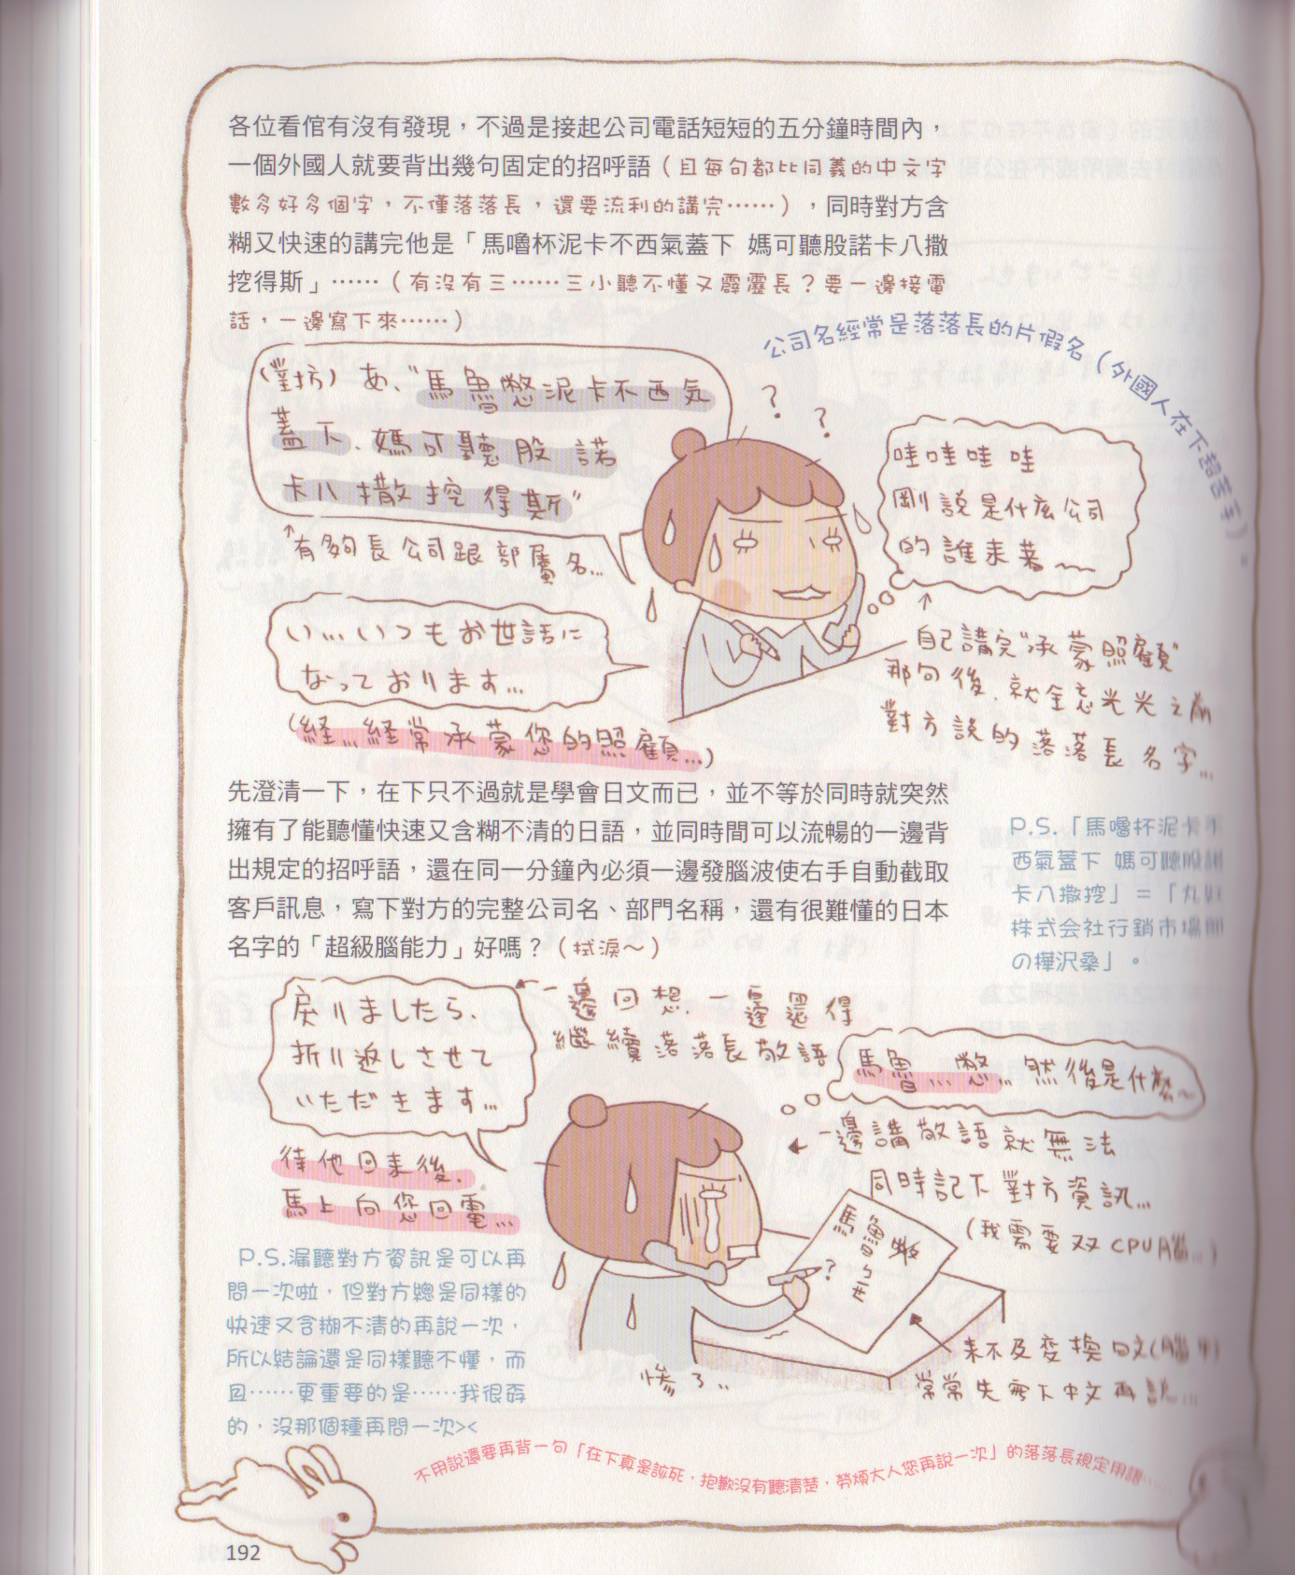 各位看倌有沒有發現，不過是接起公司電話短短的五分鐘時間內，
一個外國人就要背出幾句固定的招呼語（且每句都比同義的中文字
數多好多個字，不僅落落長，還要流利的講完……），同時對方含
糊又快速的講完他是「馬嚕杯泥卡不西氣蓋下 媽可聽股諾卡八撒
挖得斯」……（有沒有三……三小聽不懂又霹靂長？要一邊接電
話，一邊寫下來……）
公司名經常是落落長的片假名（外國人在下
(對方) あ、"馬魯憋泥卡不西気
蓋下、媽可聽股 諾
卡八撒挖得斯"
↑有夠長公司跟部屬名…
? ?
哇哇哇哇
剛說是什麼公司
的誰來著～
い…いつもお世話に
なっております…
(経…経常承蒙您的照顧…)
↑
自己講完"承蒙照顧"
那句後、就全忘光光之前
對方說的落落長名字…
先澄清一下，在下只不過就是學會日文而已，並不等於同時就突然
擁有了能聽懂快速又含糊不清的日語，並同時間可以流暢的一邊背
出規定的招呼語，還在同一分鐘內必須一邊發腦波使右手自動截取
客戶訊息，寫下對方的完整公司名、部門名稱，還有很難懂的日本
名字的「超級腦能力」好嗎？（拭淚～）
P.S.「馬嚕杯泥卡不
西氣蓋下 媽可聽股諾
卡八撒挖」＝「丸
株式会社行銷市場
の樺沢桑」。
戻りましたら、
折り返しさせて
いただきます…
待他回来後、
馬上向您回電…
一邊回想、一邊還得
繼續落落長敬語
馬魯…憋…然後是什麼～
一邊講敬語就無法
同時記下對方資訊…
(我需要双CPU腦…)
馬魯憋
ㄅ
?
來不及変換日文(腦中)
常常先寫下中文再說…
慘了..
P.S.漏聽對方資訊是可以再
問一次啦，但對方總是同樣的
快速又含糊不清的再說一次，
所以結論還是同樣聽不懂，而
且……更重要的是……我很孬
的，沒那個種再問一次><
不用說還要再背一句「在下真是該死，抱歉沒有聽清楚，勞煩大人您再說一次」的落落長規定用語……
192